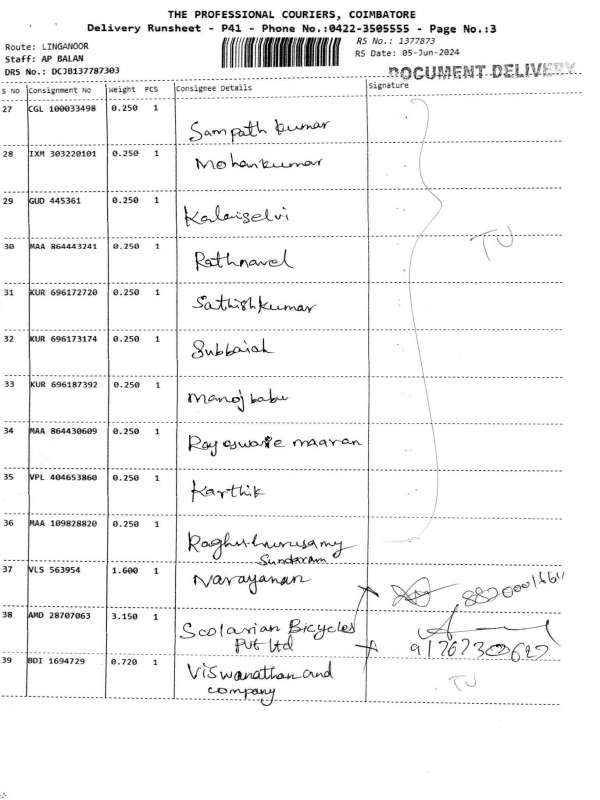 THE PROFESSIONAL COURIERS, COIMBATORE
Delivery Runsheet - P41 - Phone No.:0422-3505555 - Page No.:3
Route: LINGANOOR
RS No.: 1377873
Staff: AP BALAN
RS Date: 05-Jun-2024
DRS No.: DCJB137787303
DOCUMENT DELIVERY
S No Consignment No Weight PCS Consignee Details Signature
27 CGL 100033498 0.250 1
Sampath kumar
28 IXM 303220101 0.250 1
Mohankumar
29 GUD 445361 0.250 1
Kalaiselvi
TU
30 MAA 864443241 0.250 1
Rathnavel
31 KUR 696172720 0.250 1
Sathishkumar
32 KUR 696173174 0.250 1
Subbaiah
33 KUR 696187392 0.250 1
Manoj babu
34 MAA 864430609 0.250 1
maaran
35 VPL 404653860 0.250 1
Karthik
36 MAA 109828820 0.250 1
Sundaram
37 VLS 563954 1.600 1
Narayanan
38 AMD 28707063 3.150 1
Scolarian Bicycles
Pvt Ltd
39 BDI 1694729 0.720 1
Viswanathan and
company
TU